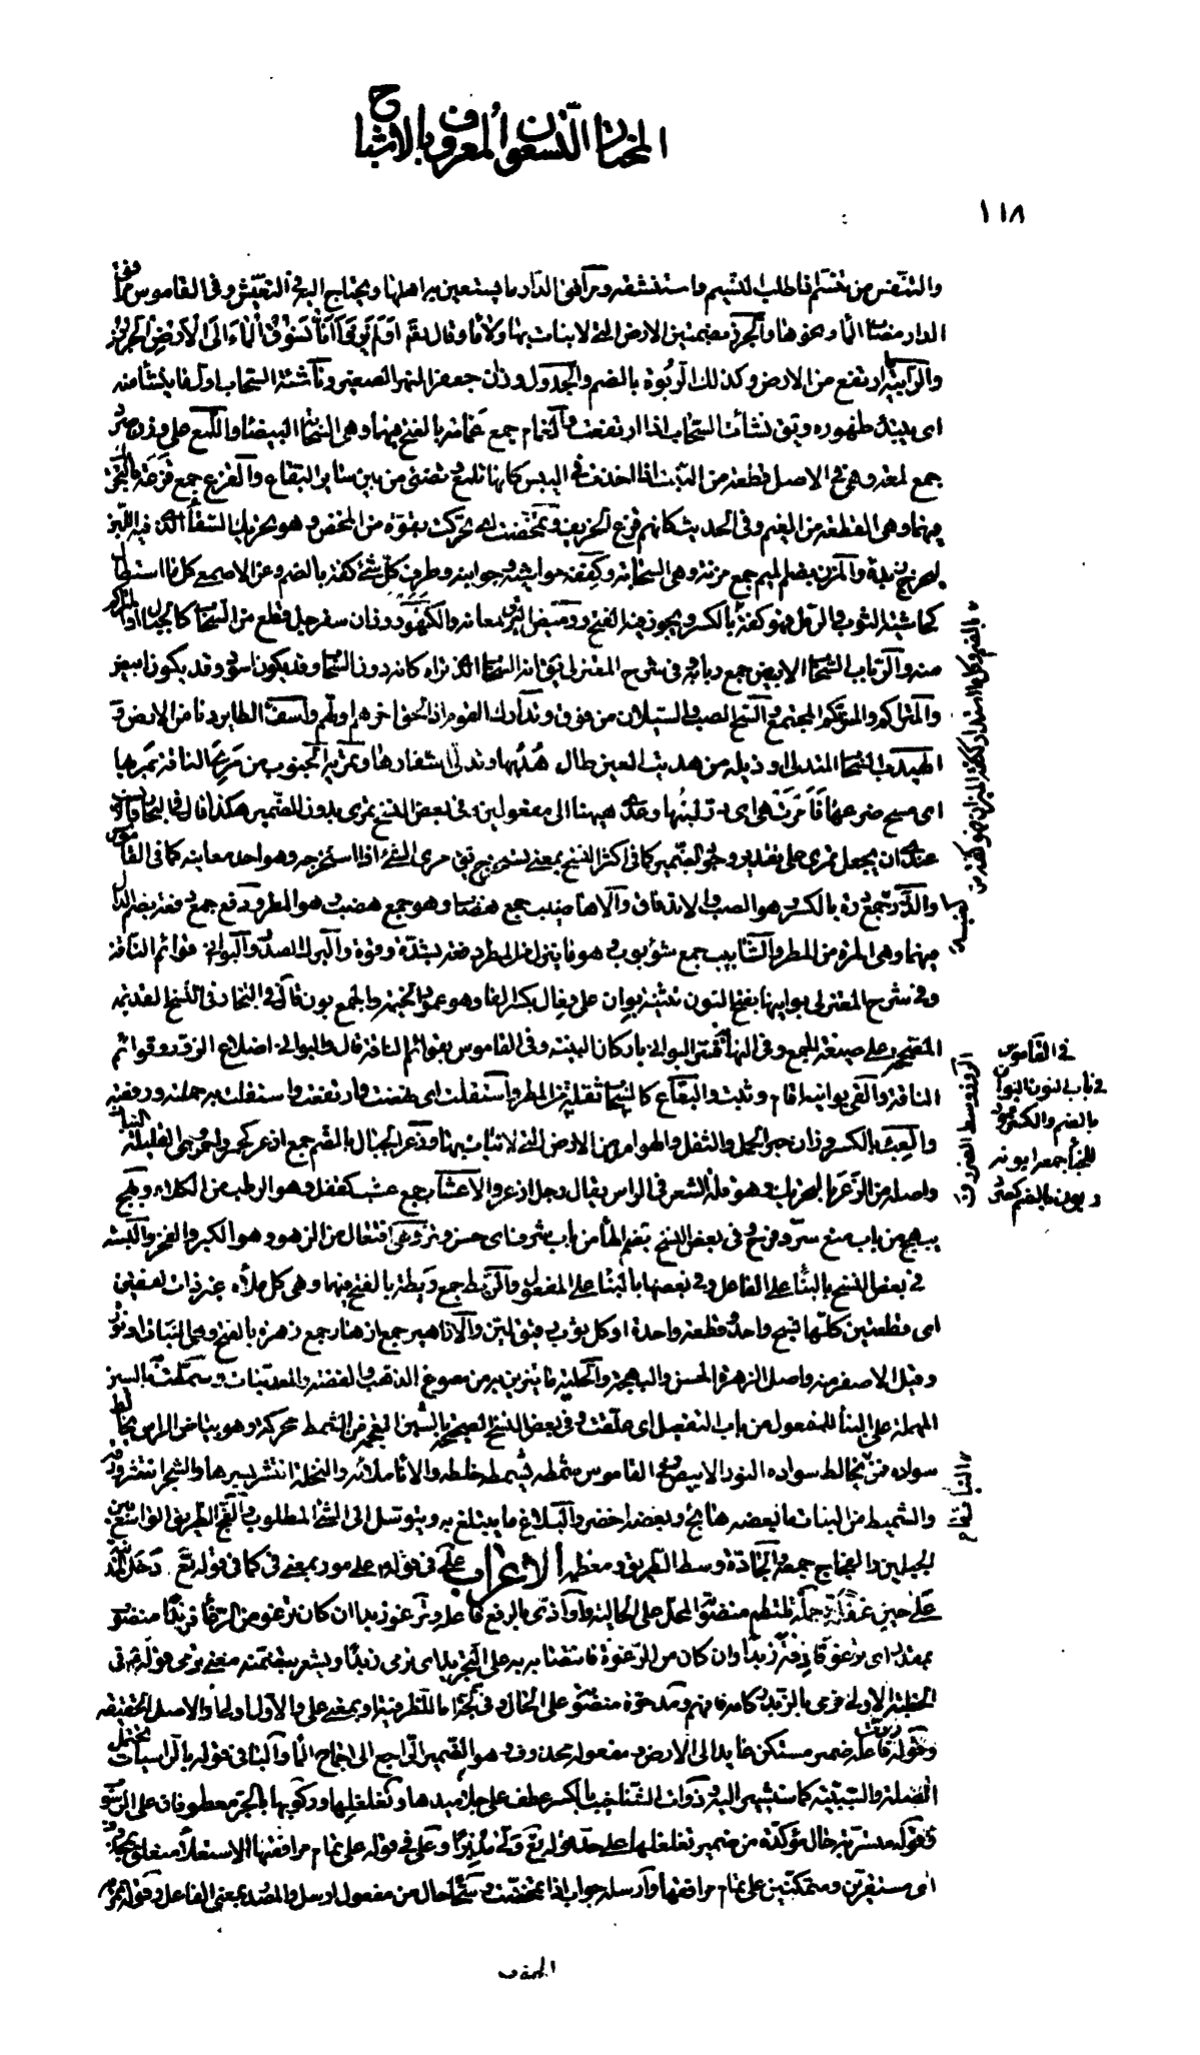 المختار التسعون المعروف بالاشباح
١١٨
والتنفس من تنسّم اذا طلب النسيم واستنشقه ومرافق الدار ما يستعين به اهلها ويحتاج اليه في التعيش وفى القاموس مرافق
الدار مصابّ الماء ونحوها والجرز بضمتين الارض التي لا نبات بها ولا ماء وقال تعالى اولم يروا انا نسوق الماء الى الارض الجرز
والرابية ما ارتفع من الارض وكذلك الربوة بالضم والجدول وزان جعفر النهر الصغير وناشئة السحاب اول ما ينشأ منه
اى يبتدء ظهوره ويق نشأت السحاب اذا ارتفعت والغمام جمع غمامة بالفتح فيهما وهى السحابة البيضاء واللمع على وزن صرد
جمع لمعة وهى في الاصل قطعة من النبت اذا اخذت في اليبس كانها تلمع وتضئ من بين ساير البقاع والقزع جمع قزعة بالتحريك
فيهما وهى القطعة من الغيم وفى الحديث كانهم قزع الخريف وتمخضت اى تحركت بقوة من المخض وهو تحريك السقاء الذى فيه اللبن
ليخرج زبده والمزن بضم الميم جمع مزنة وهى السحابة وكففه حواشيه وجوانبه وطرف كل شئ كفة بالضم وعن الاصمعى كل ما استطال
كحاشية الثوب والرمل فهو كفة بالكسر ويجوز فيه الفتح ووميض البرق لمعانه والكنهور وزان سفرجل قطع من السحاب كالجبال او المتراكم
منه والرباب السحاب الابيض جمع ربابة وفى شرح المعتزلى يق انه السحاب الذى تراه كانه دون السحاب وقد يكون اسود وقد يكون ابيض
والمتراكم والمرتكم المجتمع والسح الصب والسيلان من فوق وتدارك القوم اذا لحق اخرهم اولهم واسف الطاير دنا من الارض و
الهيدب السحاب المتدلى او ذيله من هدبت العين طال هدبها وتدلى اشفارها وتمريه الجنوب من مرى الناقة يمريها
اى مسح ضرعها فامرت هى اى در لبنها وعدى ههنا الى مفعولين وفى بعض النسخ تمرى بدون الضمير هكذا قال في البحار والاظهر
عندى ان يجعل تمرى على تقدير وجود الضمير كما فى اكثر النسخ بمعنى تستخرج يق مرى الشئ اذا استخرجه وهو احد معانيه كما فى القاموس
والدرر جمع درة بالكسر وهو الصب والاندفاق والاهاضيب جمع هضاب وهو جمع هضب وهو المطر ودفع جمع دفعة بضم الدال
فيهما وهى المرة من المطر والشآبيب جمع شؤبوب وهو ما ينزل من المطر دفعة بشدة وقوة والبرك الصدر والبوانى قوائم الناقة
وفى شرح المعتزلى بوانيها بفتح النون تثنية بوان على فعال بكسر الفاء وهو عمود الخيمة والجمع بون قال في البحار وفى النسخ القديمة
المصححة على صيغة الجمع وفى النهاية فسر البوانى باركان البنية وفى القاموس بقوائم الناقة قال والبوانى اضلاع الزور وقوائم
الناقة والقى بوانيه اقام وثبت والبعاع كالسحاب ثقل السحاب من المطر واستقلت اى نهضت وارتفعت واستقلت به حملته ورفعته
والعبء بالكسر وزان حبر الحمل والثقل والهوامد من الارض التي لا نبات بها وزعر الجبال بالضم جمع ازعر كحمر واحمر وهى القليلة النبات
واصله من الزعر بالتحريك وهو قلة الشعر فى الراس يقال رجل ازعر والاعشاب جمع عشب كقفل وهو الرطب من الكلاء وبهج
يبهج من باب منع سر وفرح وفى بعض النسخ بضم الهاء من باب شرف اى حسن وتزدهى افتعال من الزهو وهو الكبر والفخر والبسته
في بعض النسخ بالبناء على الفاعل وفى بعضها بالبناء على المفعول والريط جمع ريطة بالفتح فيهما وهى كل ملاءة غير ذات لفقين
اى قطعتين كلها نسج واحد وقطعة واحدة او كل ثوب رقيق لين والازاهير جمع ازهار جمع زهرة بالفتح وهى النبات او نوره
وقيل الاصفر منه واصل الزهرة الحسن والبهجة والحلية ما يتزين به من مصوغ الذهب والفضة والمعدنيات وسمطت بالسين
المهملة على البناء للمفعول من باب التفعيل اى علقت وفى بعض النسخ الصحيحة بالشين المعجمة من الشمط محركة وهو بياض الراس يخالط
سواده فمن يخالط سواده النور الابيض وفى القاموس شمطه يشمطه خلطه والاناء ملأه والنخلة انتثر بسرها والشجر انتثر ورقه
والشميط من النبات ما بعضه هائج وبعضه اخضر والبلاغ ما يتبلغ به ويتوسل الى الشئ المطلوب والفج الطريق الواسع بين
الجبلين والفجاج جمعه والجادة وسط الطريق ومعظمه الاعراب على في قوله على مور بمعنى فى كما فى قوله تع ودخل المدينة
على حين غفلة وجملة تلتطم منصوب المحل على الحالية واواذى بالرفع فاعله وترغو زبدا ان كان ترغو من الرغاء فزبدا منصوب
بمقدر اى ترغو قاذفة زبدا وان كان من الرغوة فانتصابه به على التجريد اى ترمى زبدا ويشعر بتضمنه معنى ترمى قوله في
الخطبة الاولى فرمى بالزبد ركامه فافهم ومدحوة منصوب على الحال وفى لجة اما للظرفية او بمعنى على والاول اولى والاصل الحقيقة
وقوله وردت فاعله ضمير مستكن عايد الى الارض ومفعوله محذوف وهو الضمير الراجع الى اجماح الماء والباء فى قوله بالراسيات تحتمل
الصلة والسببية كما ستشير اليه وذوات الشناخيب بالكسر عطف على جلاميدها وتغلغلها وركوبها بالجر معطوفان على الرسوب
وقوله متسربة حال مؤكدة من ضمير تغلغلها على حد قوله تع ولى مدبرا وعلى فى قوله على تمام مرافقها للاستعلاء متعلق بمحذوف
اى مستقرين ومتمكنين على تمام مرافقها وارسله جواب اذا تمخضت وسحا حال من مفعول ارسل والمصدر بمعنى الفاعل وقوله تمريه
بالضم وكل ما استدار ككفة الميزان فهو كفة
في القاموس
في باب النون البوان
بالضم والكسر عمود
للخباء جمعه ابونة
وبون بالضم وكصرد
الزور وسط الصدر ق
الجنوب